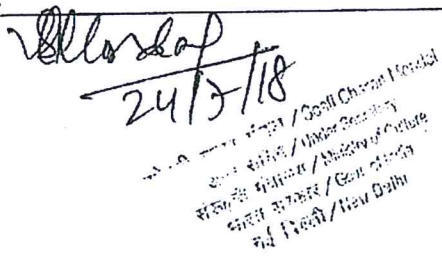 24/7/18
/ Gopi Charan Mondal
अवर सचिव / Under Secretary
संस्कृति मंत्रालय / Ministry of Culture
भारत सरकार / Govt. of India
नई दिल्ली / New Delhi